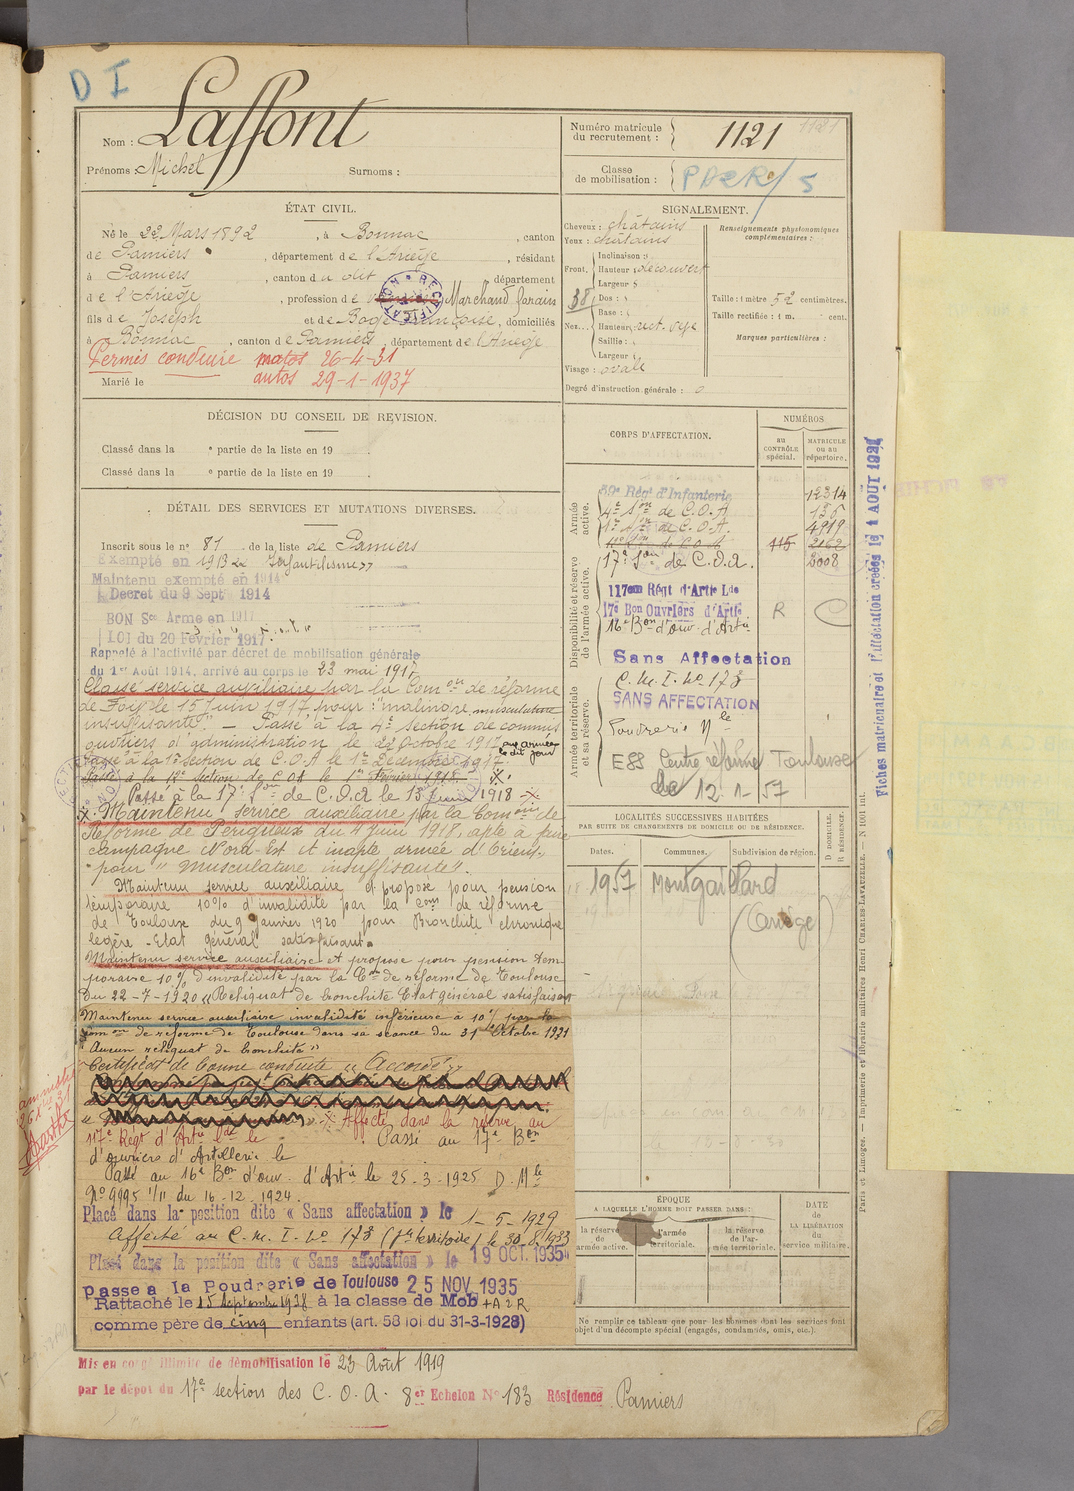 D I
Laffont
Nom :
Prénoms : Michel Surnoms :
Numéro matricule du recrutement : 1121
1121
Classe de mobilisation :
5
ÉTAT CIVIL.
Né le 22 Mars 1892, à Bonnac, canton
de Pamiers, département de l'Ariège, résidant
à Pamiers, canton du dit, département
de l'Ariège, profession de Marchand forain
RECTIFICATION
fils de Joseph et de Françoise, domiciliés
à Bonnac, canton de Pamiers, département de l'Ariège
Permis conduire motos 26-4-31
autos 29-1-1937
Marié le
SIGNALEMENT.
Cheveux : châtains
Yeux : châtains
Front. Inclinaison :
Hauteur : découvert
Largeur :
38
Nez... Dos :
Base :
Hauteur : rect.
Saillie :
Largeur :
Visage : ovale
Degré d'instruction générale : 0
Renseignements physionomiques complémentaires :
Taille : 1 mètre 52 centimètres.
Taille rectifiée : 1 m. cent.
Marques particulières :
DÉCISION DU CONSEIL DE REVISION.
Classé dans la e partie de la liste en 19 .
Classé dans la e partie de la liste en 19 .
DÉTAIL DES SERVICES ET MUTATIONS DIVERSES.
Inscrit sous le n° 81 de la liste de Pamiers
Exempté en 1913
Maintenu exempté en 1914
Decret du 9 Sept 1914
BON Sce Armé en 1917
LOI du 20 Février 1917.
Rappelé à l'activité par décret de mobilisation générale
du 1er Août 1914, arrivé au corps le 23 mai 1917
Classé service auxiliaire par la Com on de réforme
de Foix le 15 juin 1917 pour : "malingre, musculature
insuffisante". - Passé à la 4e section de commis
ouvriers d'administration le 22 Octobre 1917 aux armées le dit jour
Passé à la 1e section de C.O.A le 1er Décembre 1917
Passé à la 17e section de C.O.A le 1er Février 1918
Passé à la 17e Son de C.O.A le 13 Juin 1918
Maintenu service auxiliaire par la Com on de
Réforme de Périgueux du 4 juin 1918, apte à faire
campagne Nord-Est et inapte armée d'Orient
pour "musculature insuffisante".
Maintenu service auxiliaire et proposé pour pension
temporaire 10% d'invalidité par la Com de réforme
de Toulouse du 9 Janvier 1920 pour Bronchite chronique
légère - Etat général satisfaisant.
Maintenu service auxiliaire et proposé pour pension tem-
poraire 10% d'invalidité par la Con de réforme de Toulouse
du 22-7-1920 "Reliquat de bronchite Etat général satisfaisant
Maintenu service auxiliaire invalidité inférieure à 10% par la
Com on de réforme de Toulouse dans sa séance du 31 Octobre 1921
"Aucun reliquat de bronchite"
Certificat de bonne conduite "Accordé"
Affecté dans la réserve au
117e Régt d'Artie Lde le . Passé au 17e Bon
d'ouvriers d'Artillerie le
Passé au 16e Bon d'ouv. d'Artie le 25-3-1925 D. Mle
N° 9995 1/11 du 16-12-1924.
Placé dans la position dite « Sans affectation » le 1-5-1929
Affecté au C.M.I. No 173 (Gde territoire) le 30-8-1933
Placé dans la position dite « Sans affectation » le 19 OCT. 1935
passé a la Poudrerie de Toulouse 25 NOV 1935
Rattaché le 15 Septembre 1938 à la classe de Mob
comme père de cinq enfants (art. 58 loi du 31-3-1928)
Mis en congé illimité de démobilisation le 23 Août 1919
par le dépôt du 17e sections des C.O.A. 8er Echelon N° 183 Résidence Pamiers
CORPS D'AFFECTATION.
NUMÉROS
AU CONTRÔLE SPÉCIAL.
MATRICULE OU AU RÉPERTOIRE.
Armée active.
59e Régt d'Infanterie 12314
4e Son de C.O.A 136
1e Son de C.O.A. 4919
11e Son de C.O.A 115 2162
Disponibilité et réserve de l'armée active.
17e Son de C.O.A. 2008
117eme Régt d'Artie Lde
17e Bon Ouvriers d'Artie R
16e Bon d'ouv. d'Artie
Sans Affectation
Armée territoriale et sa réserve.
C.M.I. No 173
SANS AFFECTATION
Poudrerie Nle
E88 Centre réforme Toulouse
12.1-57
LOCALITÉS SUCCESSIVES HABITÉES
PAR SUITE DE CHANGEMENTS DE DOMICILE OU DE RÉSIDENCE.
Dates. Communes. Subdivision de région. D DOMICILE. R RÉSIDENCE.
1957 Montgaillard
(Ariège)
ÉPOQUE
A LAQUELLE L'HOMME DOIT PASSER DANS :
la réserve de l'armée active.
l'armée territoriale.
la réserve de l'armée territoriale.
DATE de LA LIBÉRATION du service militaire.
Ne remplir ce tableau que pour les hommes dont les services font
objet d'un décompte spécial (engagés, condamnés, omis, etc.).
Fiches matriculaire et d'affectation créées le 1 AOUT 1921
Paris et Limoges. — Imprimerie et librairie militaires Henri CHARLES-LAVAUZELLE. —